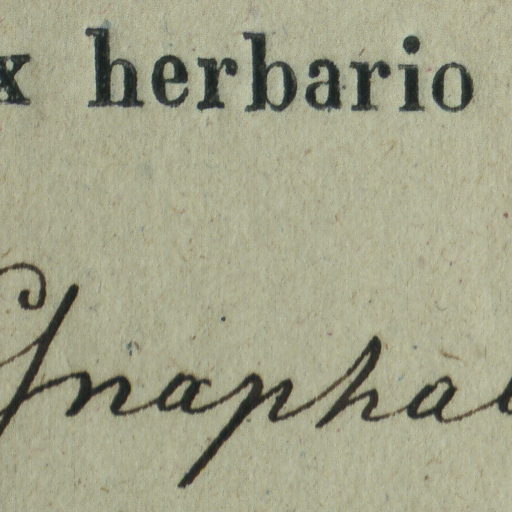 x herbario
Gnaphal